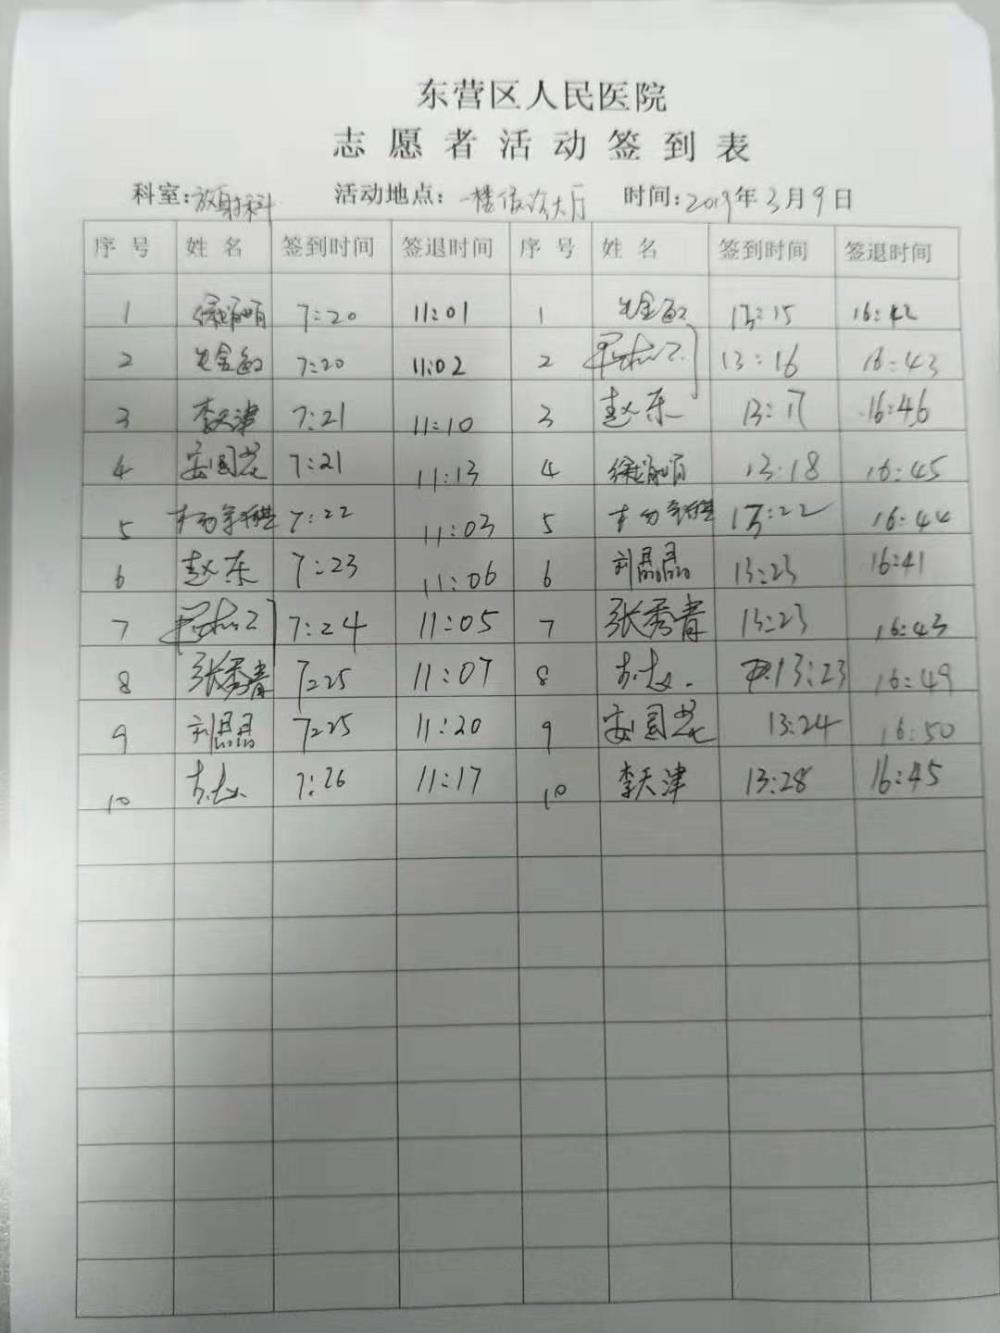 东营区人民医院
志愿者活动签到表
科室:放射科 活动地点:一楼候诊大厅 时间:2019年3月9日
序号 姓名 签到时间 签退时间 序号 姓名 签到时间 签退时间
1 7:20 11:01 1 13:15 16:42
2 7:20 11:02 2 13:16 16:43
3 李天津 7:21 11:10 3 赵东 13:17 16:46
4 安国花 7:21 11:13 4 13:18 16:45
5 7:22 11:03 5 13:22 16:44
6 赵东 7:23 11:06 6 刘晶晶 13:23 16:41
7 7:24 11:05 7 张秀青 13:23 16:43
8 张秀青 7:25 11:07 8 13:23 16:49
9 刘晶晶 7:25 11:20 9 安国花 13:24 16:50
10 7:26 11:17 10 李天津 13:28 16:45